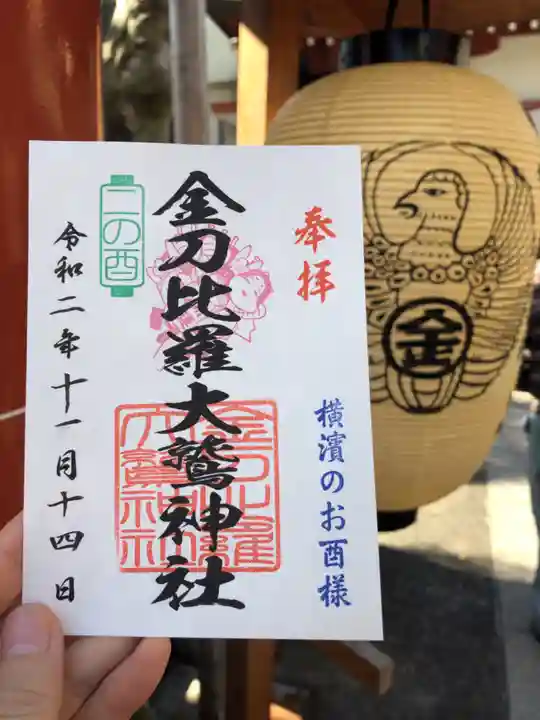 奉拝
横濱のお酉様
金刀比羅大鷲神社
金刀比羅
大鷲神社
二の酉
令和二年十一月十四日
金